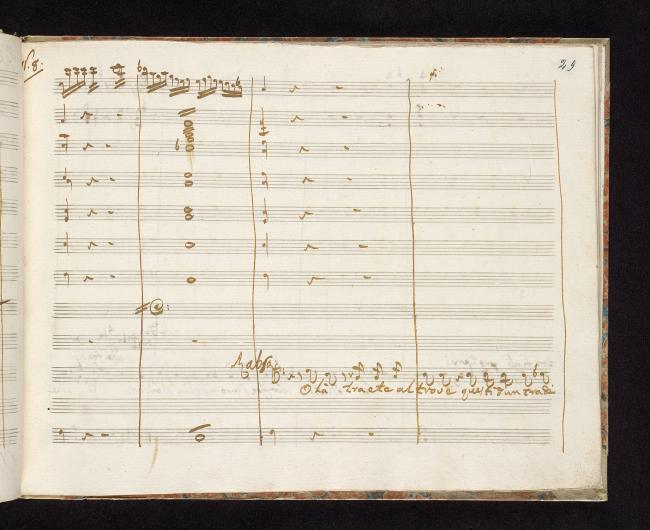 N. 8:
29
Olà traete altrove questi d'un tradi